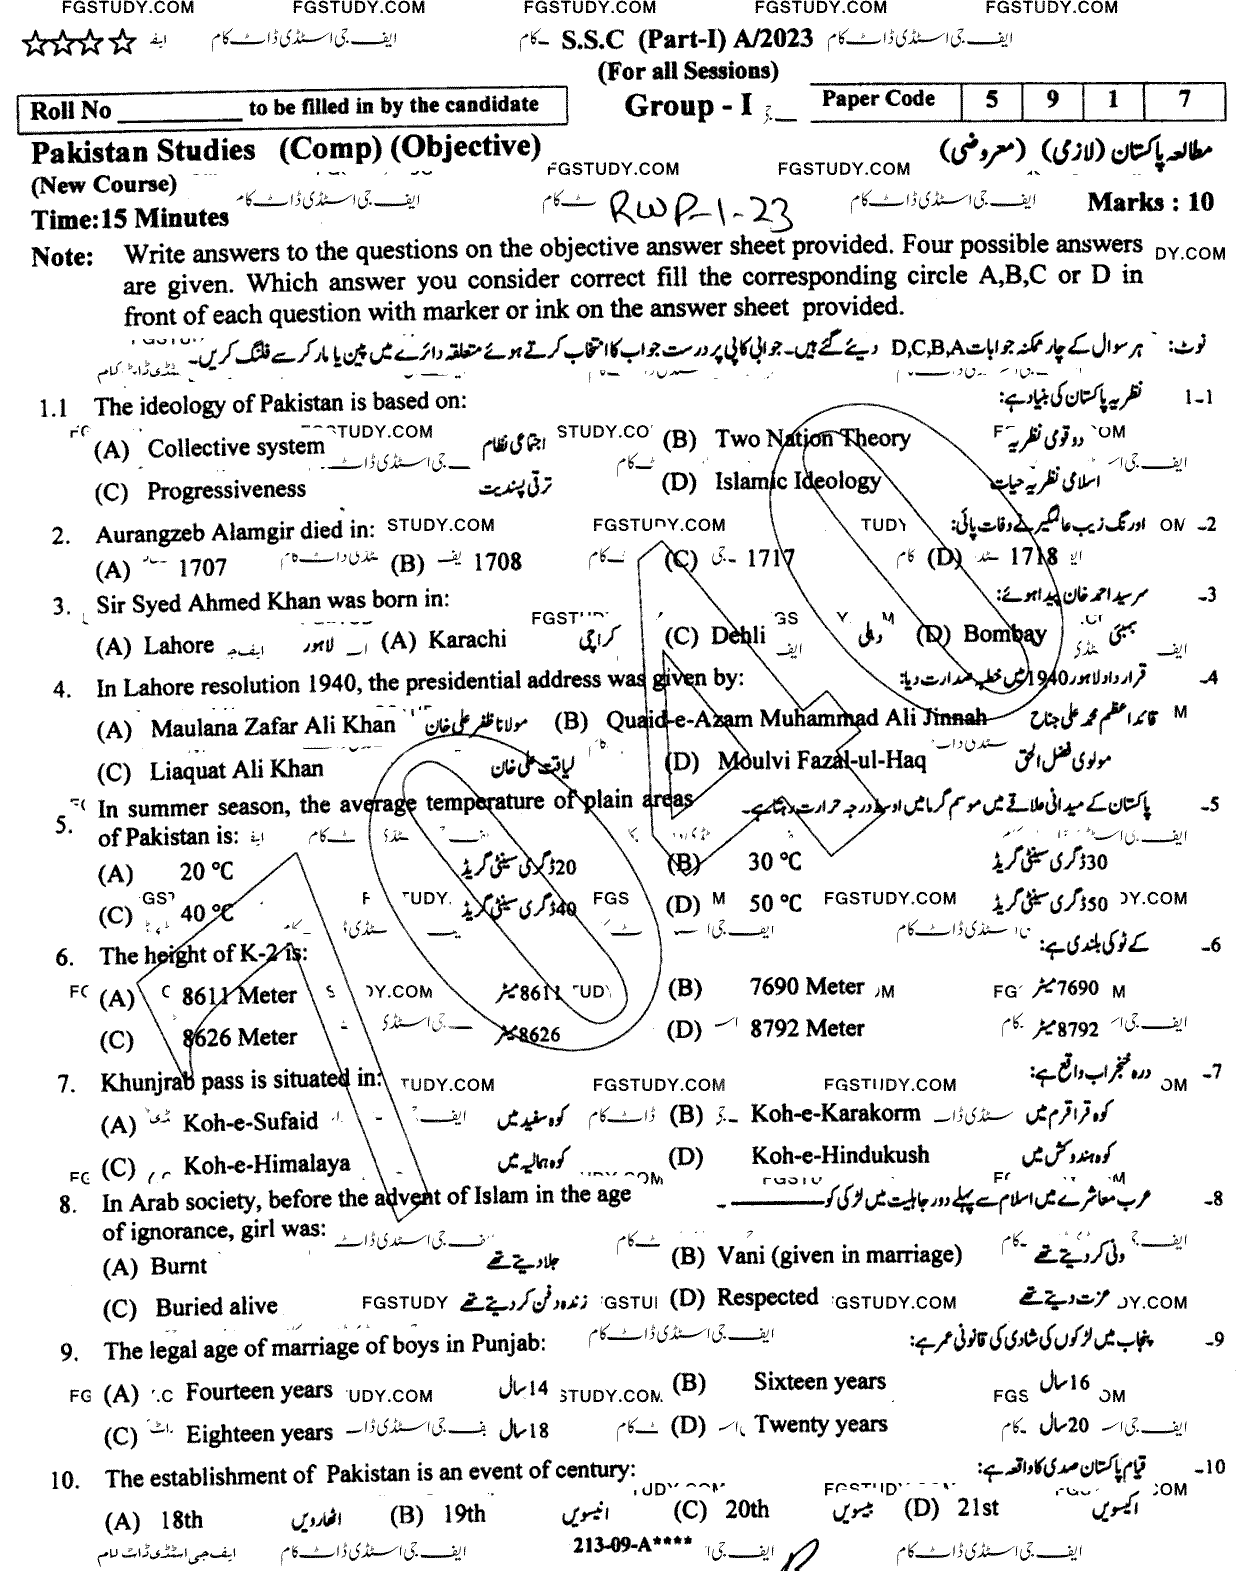 FGSTUDY.COM FGSTUDY.COM FGSTUDY.COM FGSTUDY.COM FGSTUDY.COM
☆☆☆☆ ایف جی اسٹڈی ڈاٹ کام S.S.C (Part-I) A/2023 ایف جی اسٹڈی ڈاٹ کام
(For all Sessions)
Roll No __________ to be filled in by the candidate Group - I Paper Code 5 9 1 7
Pakistan Studies (Comp) (Objective) مطالعہ پاکستان (لازمی) (معروضی)
FGSTUDY.COM FGSTUDY.COM
(New Course)
Time:15 Minutes ایف جی اسٹڈی ڈاٹ کام RWP-1-23 ایف جی اسٹڈی ڈاٹ کام Marks : 10
Note: Write answers to the questions on the objective answer sheet provided. Four possible answers DY.COM
are given. Which answer you consider correct fill the corresponding circle A,B,C or D in
front of each question with marker or ink on the answer sheet provided.
نوٹ: ہر سوال کے چار ممکنہ جوابات D,C,B,A دیئے گئے ہیں۔ جوابی کاپی پر درست جواب کا انتخاب کرتے ہوئے متعلقہ دائرے میں پین یا مارکر سے فلنگ کریں۔
1.1 The ideology of Pakistan is based on: نظریہ پاکستان کی بنیاد ہے: 1-1
(A) Collective system اجتماعی نظام (B) Two Nation Theory دو قومی نظریہ
(C) Progressiveness ترقی پسندیت (D) Islamic Ideology اسلامی نظریہ حیات
2. Aurangzeb Alamgir died in: STUDY.COM FGSTUDY.COM اورنگ زیب عالمگیر نے وفات پائی: -2
(A) 1707 (B) 1708 (C) 1717 (D) 1718
3. Sir Syed Ahmed Khan was born in: سرسید احمد خان پیدا ہوئے: -3
(A) Lahore لاہور (A) Karachi کراچی (C) Dehli دہلی (D) Bombay بمبئی
4. In Lahore resolution 1940, the presidential address was given by: قرارداد لاہور 1940 میں خطبہ صدارت دیا: -4
(A) Maulana Zafar Ali Khan مولانا ظفر علی خان (B) Quaid-e-Azam Muhammad Ali Jinnah قائداعظم محمد علی جناح
(C) Liaquat Ali Khan لیاقت علی خان (D) Moulvi Fazal-ul-Haq مولوی فضل الحق
5. In summer season, the average temperature of plain areas پاکستان کے میدانی علاقے میں موسم گرما میں اوسط درجہ حرارت رہتا ہے۔ -5
of Pakistan is:
(A) 20 °C 20ڈگری سینٹی گریڈ (B) 30 °C 30ڈگری سینٹی گریڈ
(C) 40 °C 40ڈگری سینٹی گریڈ (D) 50 °C FGSTUDY.COM 50ڈگری سینٹی گریڈ
6. The height of K-2 is: کے ٹو کی بلندی ہے: -6
(A) 8611 Meter 8611میٹر (B) 7690 Meter 7690میٹر
(C) 8626 Meter 8626میٹر (D) 8792 Meter 8792میٹر
7. Khunjrab pass is situated in: TUDY.COM FGSTUDY.COM درہ خنجراب واقع ہے: -7
(A) Koh-e-Sufaid کوہ سفید میں (B) Koh-e-Karakorm کوہ قراقرم میں
(C) Koh-e-Himalaya کوہ ہمالیہ میں (D) Koh-e-Hindukush کوہ ہندوکش میں
8. In Arab society, before the advent of Islam in the age عرب معاشرے میں اسلام سے پہلے دور جاہلیت میں لڑکی کو ________ ۔ -8
of ignorance, girl was:
(A) Burnt جلا دیتے تھے (B) Vani (given in marriage) ونی کر دیتے تھے
(C) Buried alive زندہ دفن کر دیتے تھے (D) Respected عزت دیتے تھے
9. The legal age of marriage of boys in Punjab: ایف جی اسٹڈی ڈاٹ کام پنجاب میں لڑکوں کی شادی کی قانونی عمر ہے: -9
(A) Fourteen years 14سال (B) Sixteen years 16سال
(C) Eighteen years 18سال (D) Twenty years 20سال
10. The establishment of Pakistan is an event of century: قیام پاکستان صدی کا واقعہ ہے: -10
(A) 18th اٹھارویں (B) 19th انیسویں (C) 20th بیسویں (D) 21st اکیسویں
ایف جی اسٹڈی ڈاٹ کام 213-09-A**** ایف جی اسٹڈی ڈاٹ کام